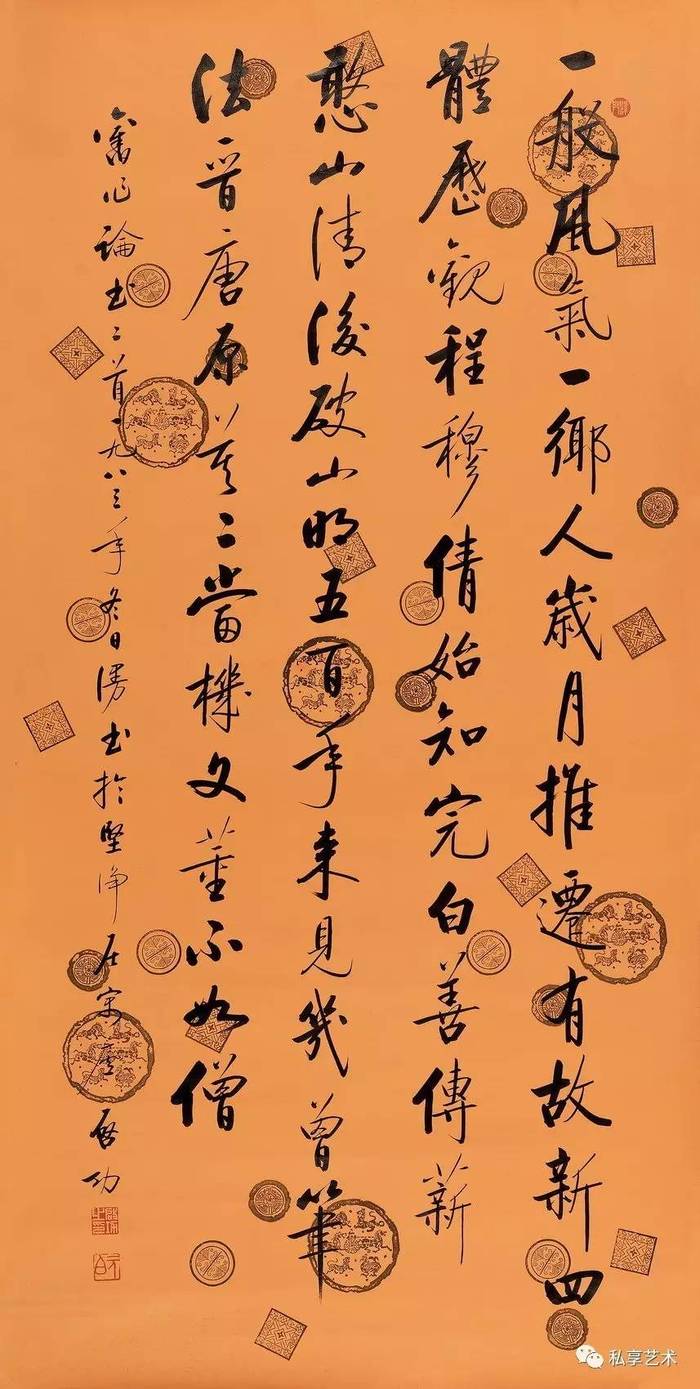 一般風氣一鄉人歲月推遷有故新四
體歷觀程穆倩始知完白善傳薪
憨山清後破山明五百年來見幾曾筆
法晉唐原莫二當機文董不如僧
舊作論書二首一九八三年冬日漫書於堅淨居
啟功
私享艺术